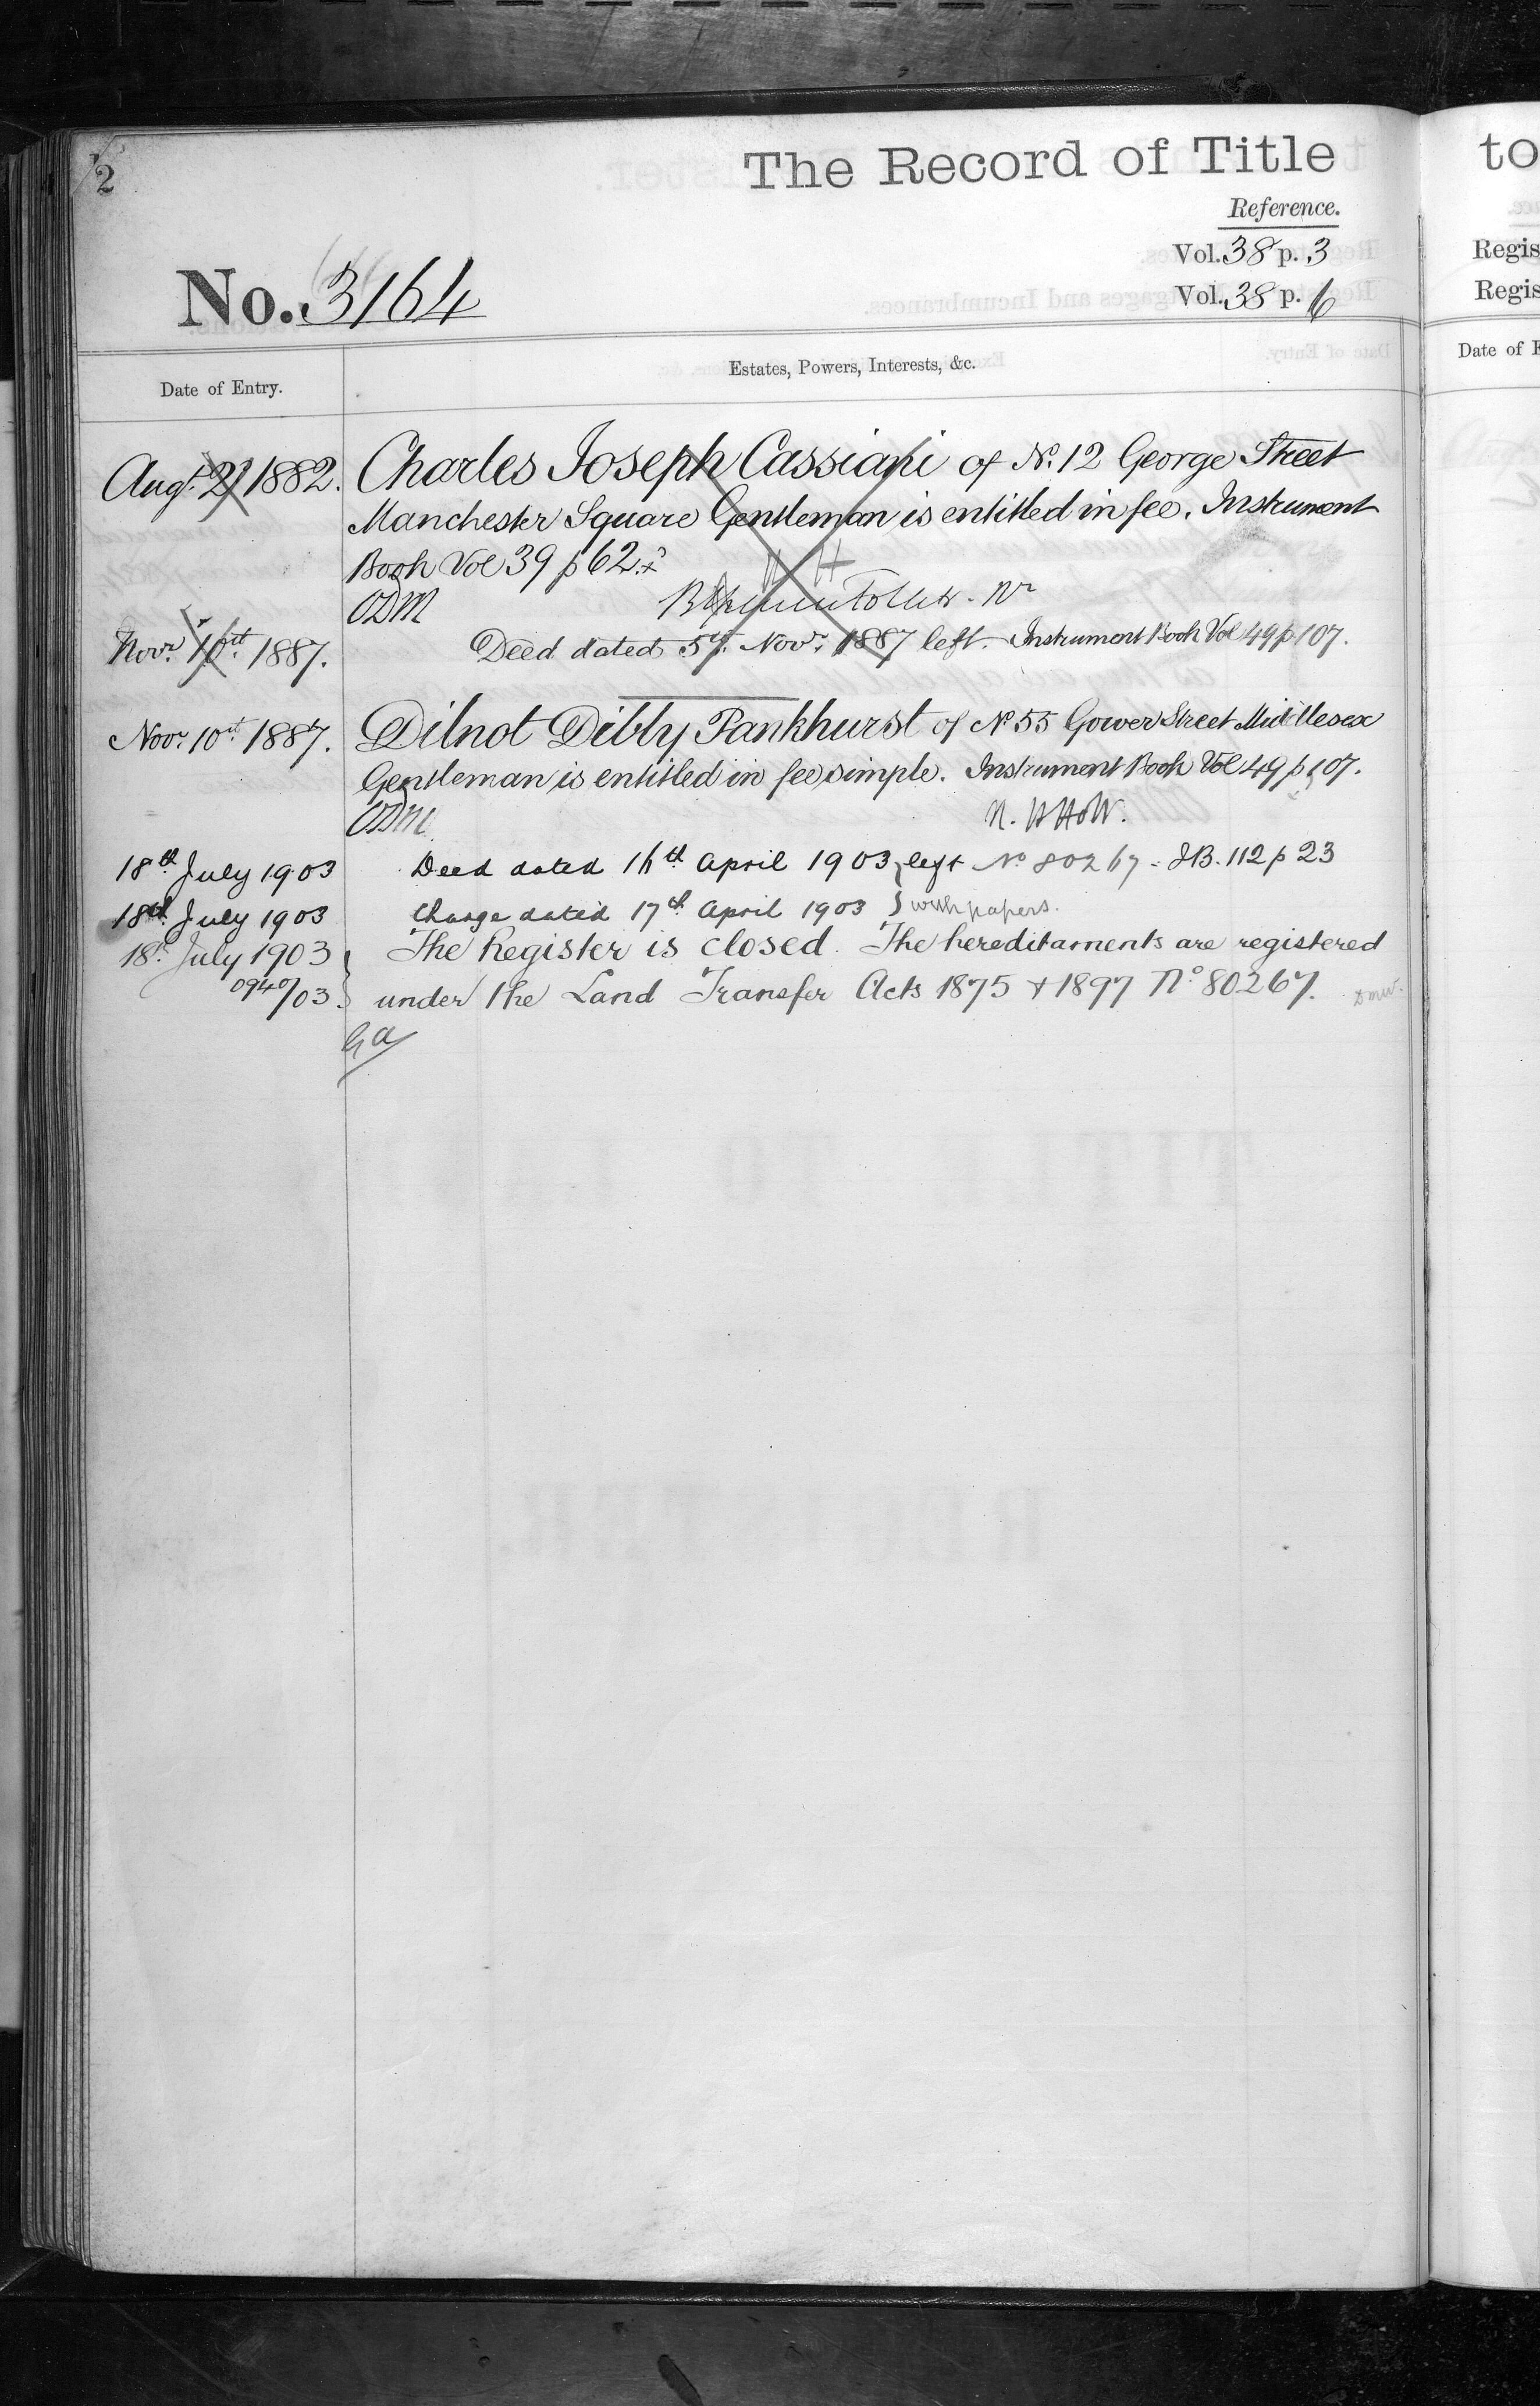 2
The Record of Title
Reference.
Vol. 38 p. 3
No. 3164
Vol. 38 p. 6
Date of Entry.
Estates, Powers, Interests, &c.
Augt. 21 1882. Charles Joseph Cassiani of No. 12 George Street
Manchester Square Gentleman is entitled in fee. Instrument
Book Vol 39 p 62.
ODM
Novr. 10th. 1887. Deed dated 5th. Novr. 1887 left. Instrument Book Vol 49 p 107.
Novr. 10th 1887. Dilnot Dibly Pankhurst of No 55 Gower Street Middlesex
Gentleman is entitled in fee simple. Instrument Book Vol 49 p 107.
ODM
18th July 1903 Deed dated 16th April 1903 } left No 80267 - IB. 112 p 23
18th. July 1903 Charge dated 17th April 1903 } with papers.
18th. July 1903 } The Register is closed. The hereditaments are registered
0940/03 } under the Land Transfer Acts 1875 & 1897 No. 80267.
Ga
to
Regis
Regis
Date of E